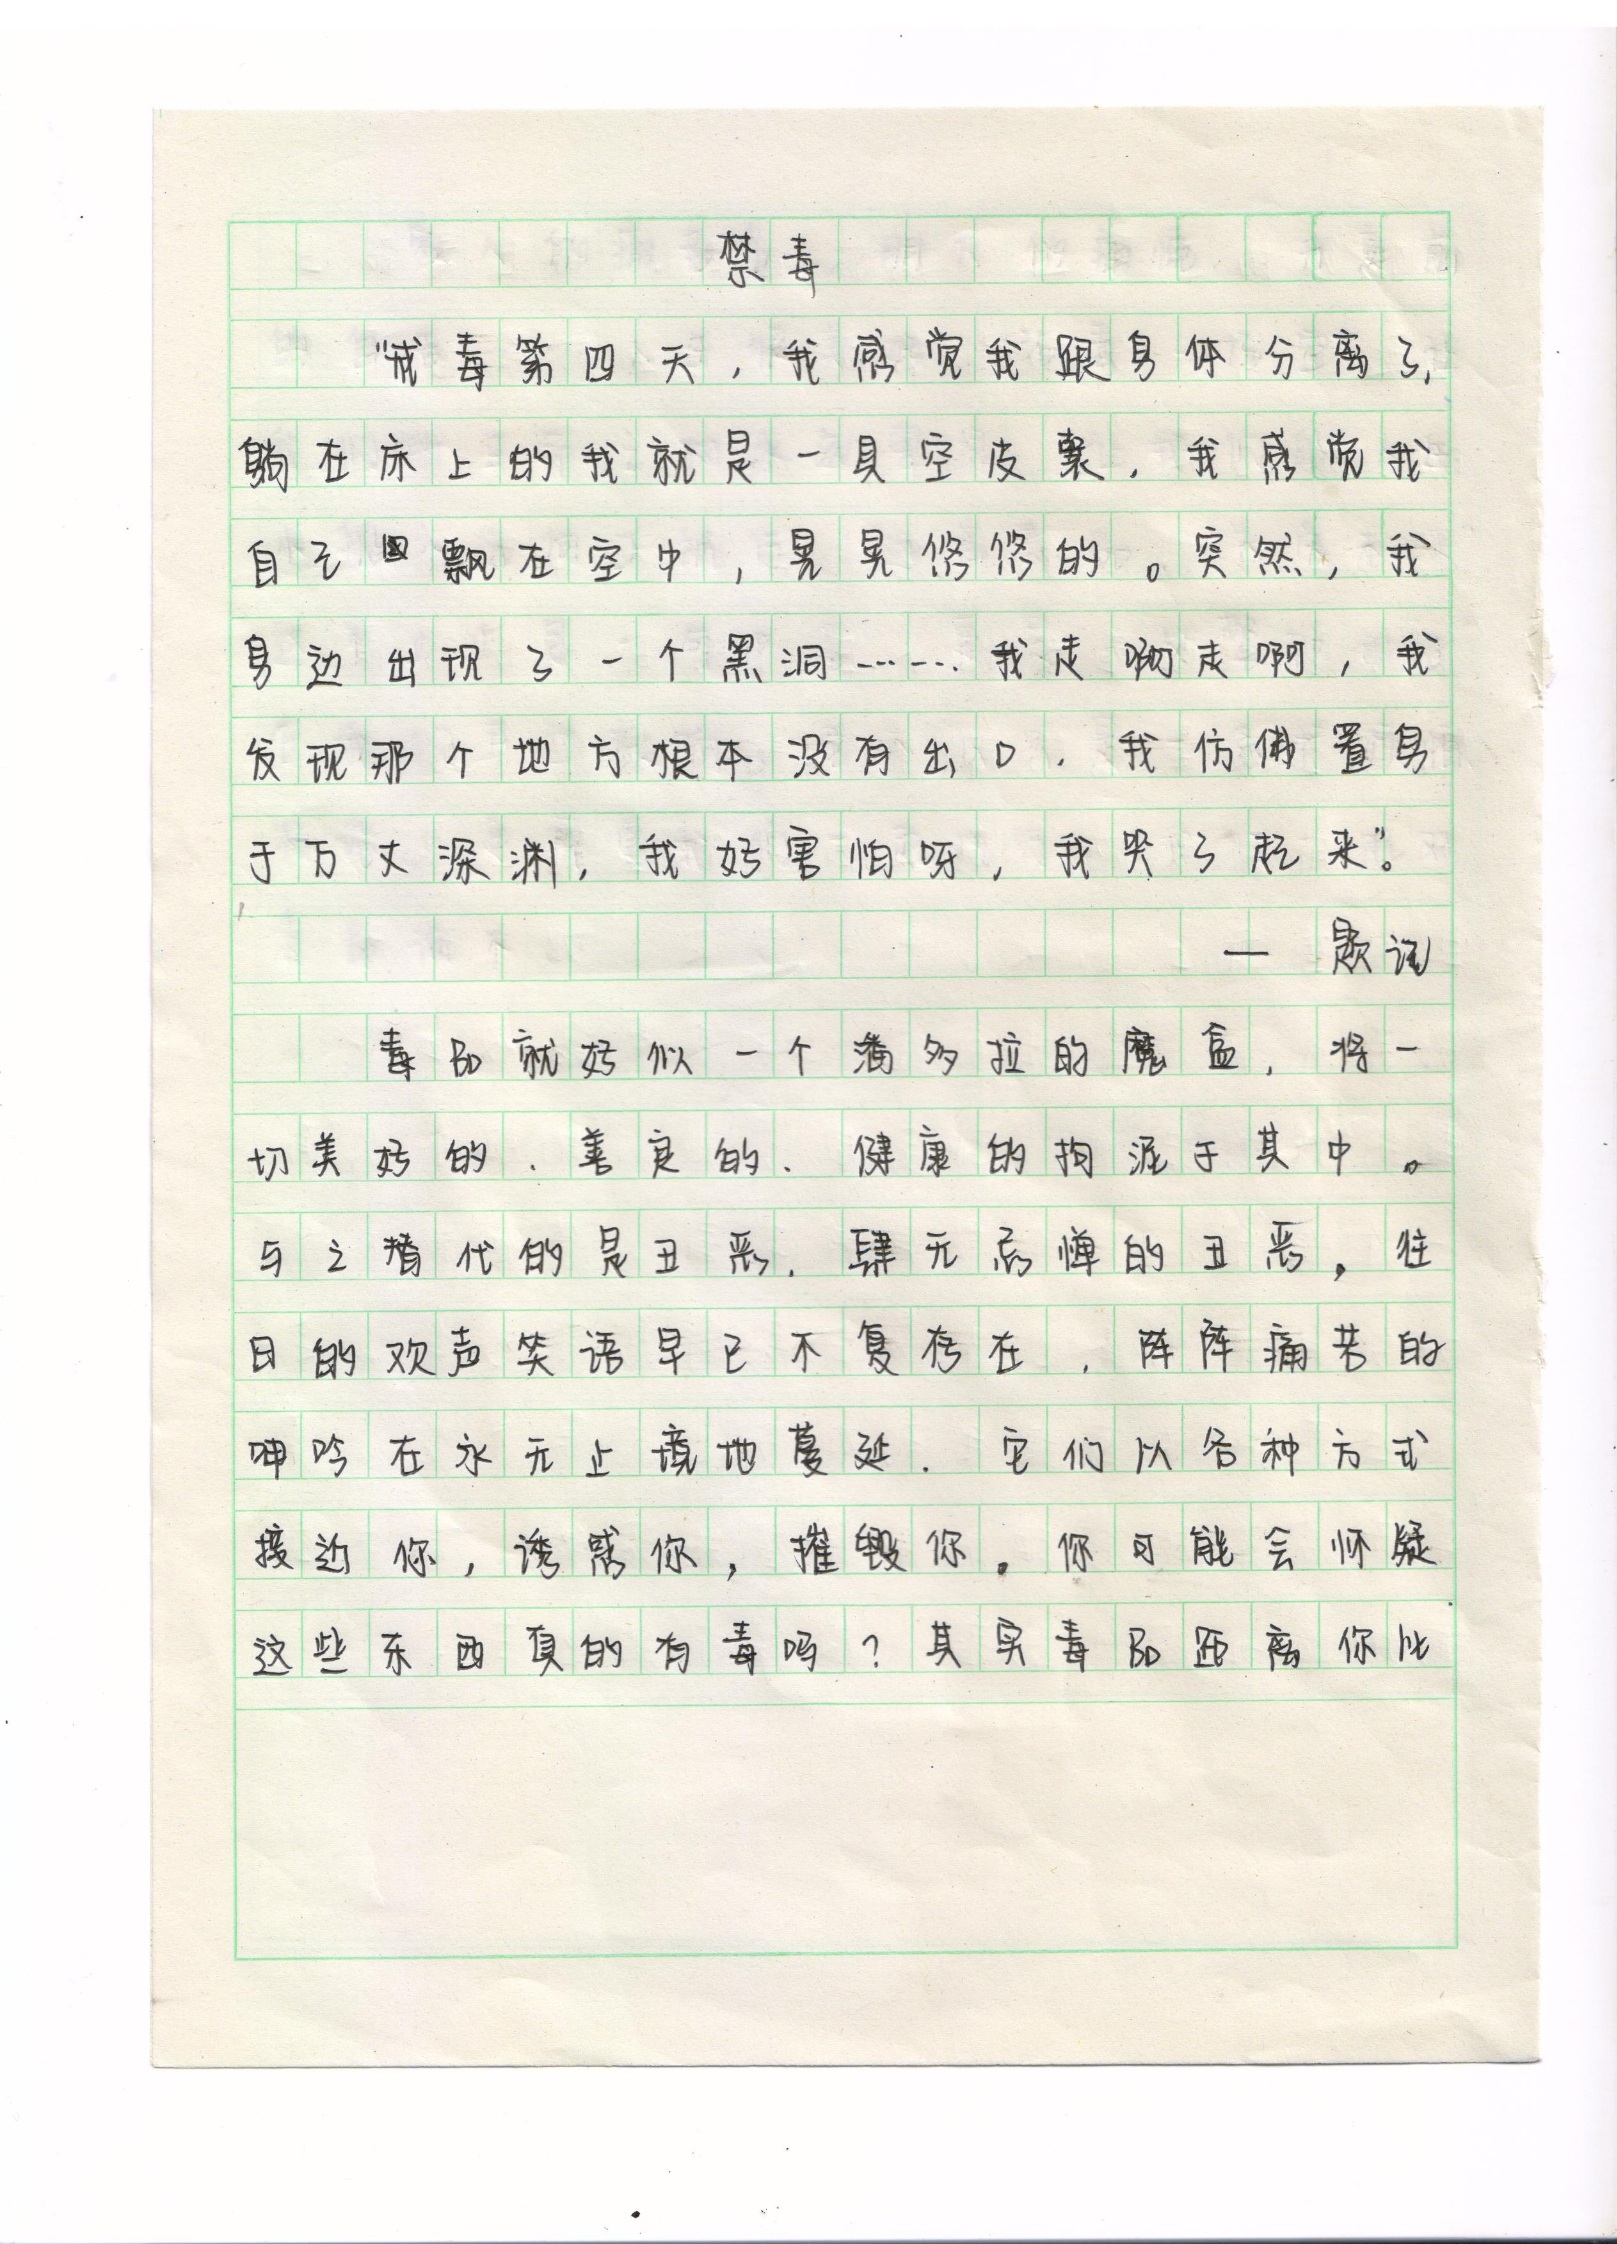 禁毒
“戒毒第四天，我感觉我跟身体分离了，
躺在床上的我就是一具空皮囊．我感觉我
自己飘在空中，晃晃悠悠的。突然，我
身边出现了一个黑洞……我走啊走啊，我
发现那个地方根本没有出口．我仿佛置身
于万丈深渊，我好害怕呀，我哭了起来”。
— 题记
毒品就好似一个潘多拉的魔盒，将一
切美好的、善良的、健康的拘泥于其中。
与之替代的是丑恶．肆无忌惮的丑恶，往
日的欢声笑语早已不复存在，阵阵痛苦的
呻吟在永无止境地蔓延．它们以各种方式
接近你，诱惑你，摧毁你。你可能会怀疑
这些东西真的有毒吗？其实毒品距离你比